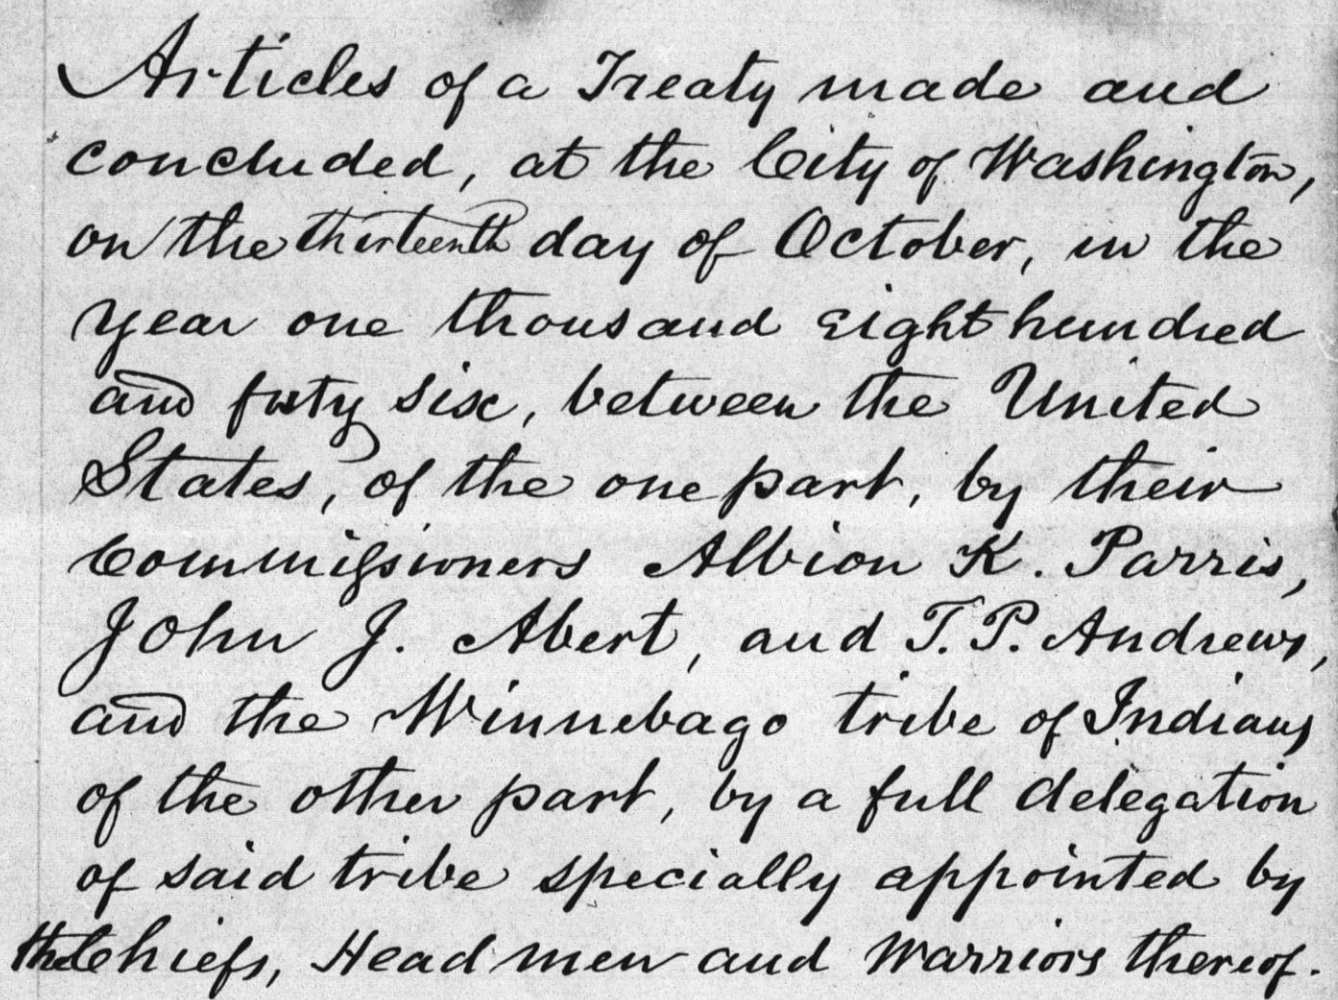 Articles of a Treaty made and
concluded, at the City of Washington,
on the thirteenth day of October, in the
year one thousand eight hundred
and forty six, between the United
States, of the one part, by their
Commissioners Albion K. Parris,
John J. Abert, and T. P. Andrews,
and the Winnebago tribe of Indians
of the other part, by a full delegation
of said tribe specially appointed by
the Chiefs, Head men and Warriors thereof.